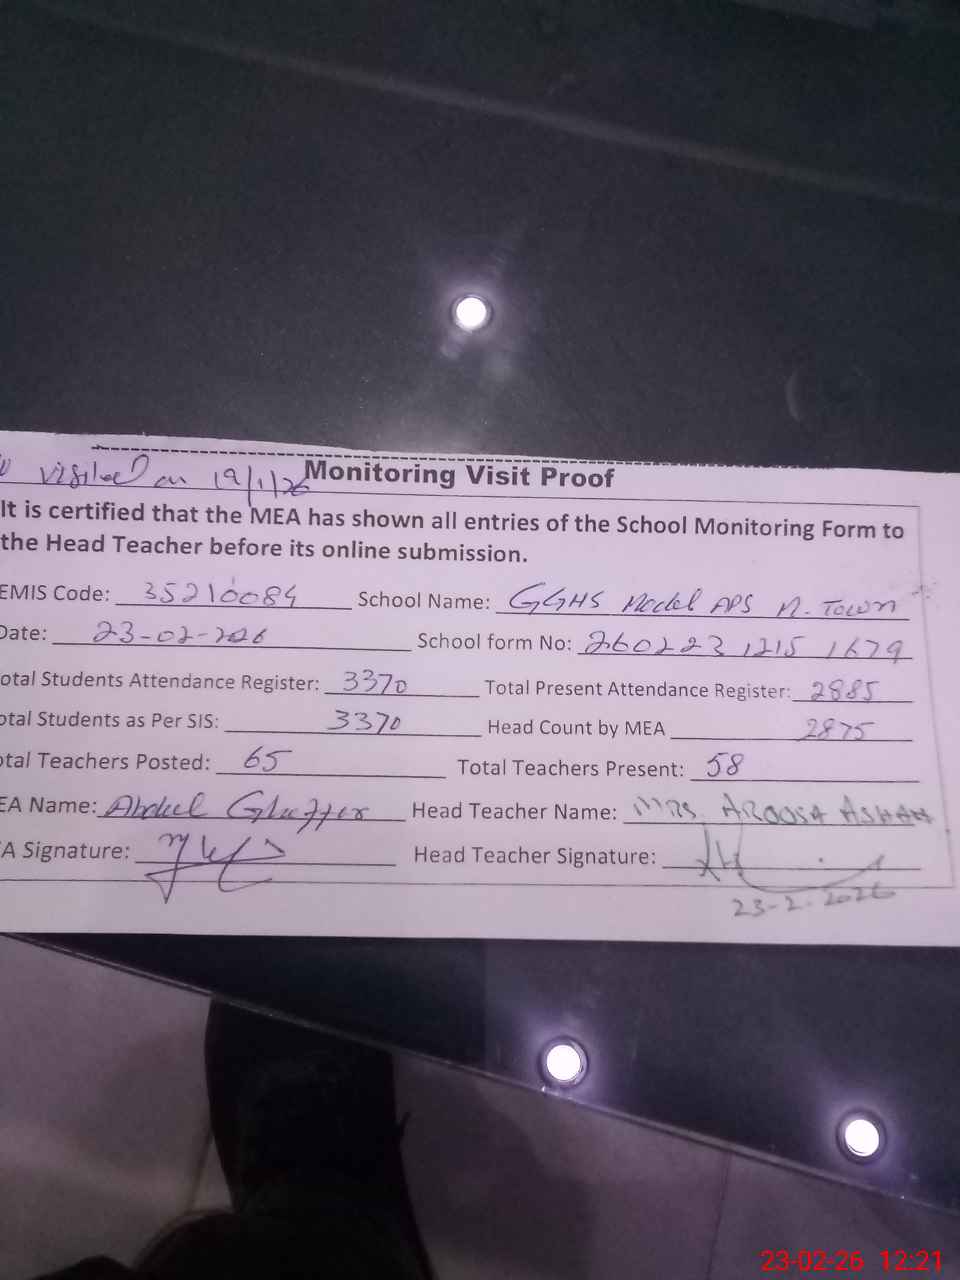 visited on 19/1/26
Monitoring Visit Proof
It is certified that the MEA has shown all entries of the School Monitoring Form to
the Head Teacher before its online submission.
EMIS Code: 35210084 School Name: GGHS Model APS M. Town
Date: 23-02-2026 School form No: 260223 1215 1679
otal Students Attendance Register: 3370 Total Present Attendance Register: 2885
otal Students as Per SIS: 3370 Head Count by MEA 2875
otal Teachers Posted: 65 Total Teachers Present: 58
EA Name: Abdul Ghaffar Head Teacher Name: MRS. AROOSA
A Signature: Head Teacher Signature:
23-2-2026
23-02-26 12:21